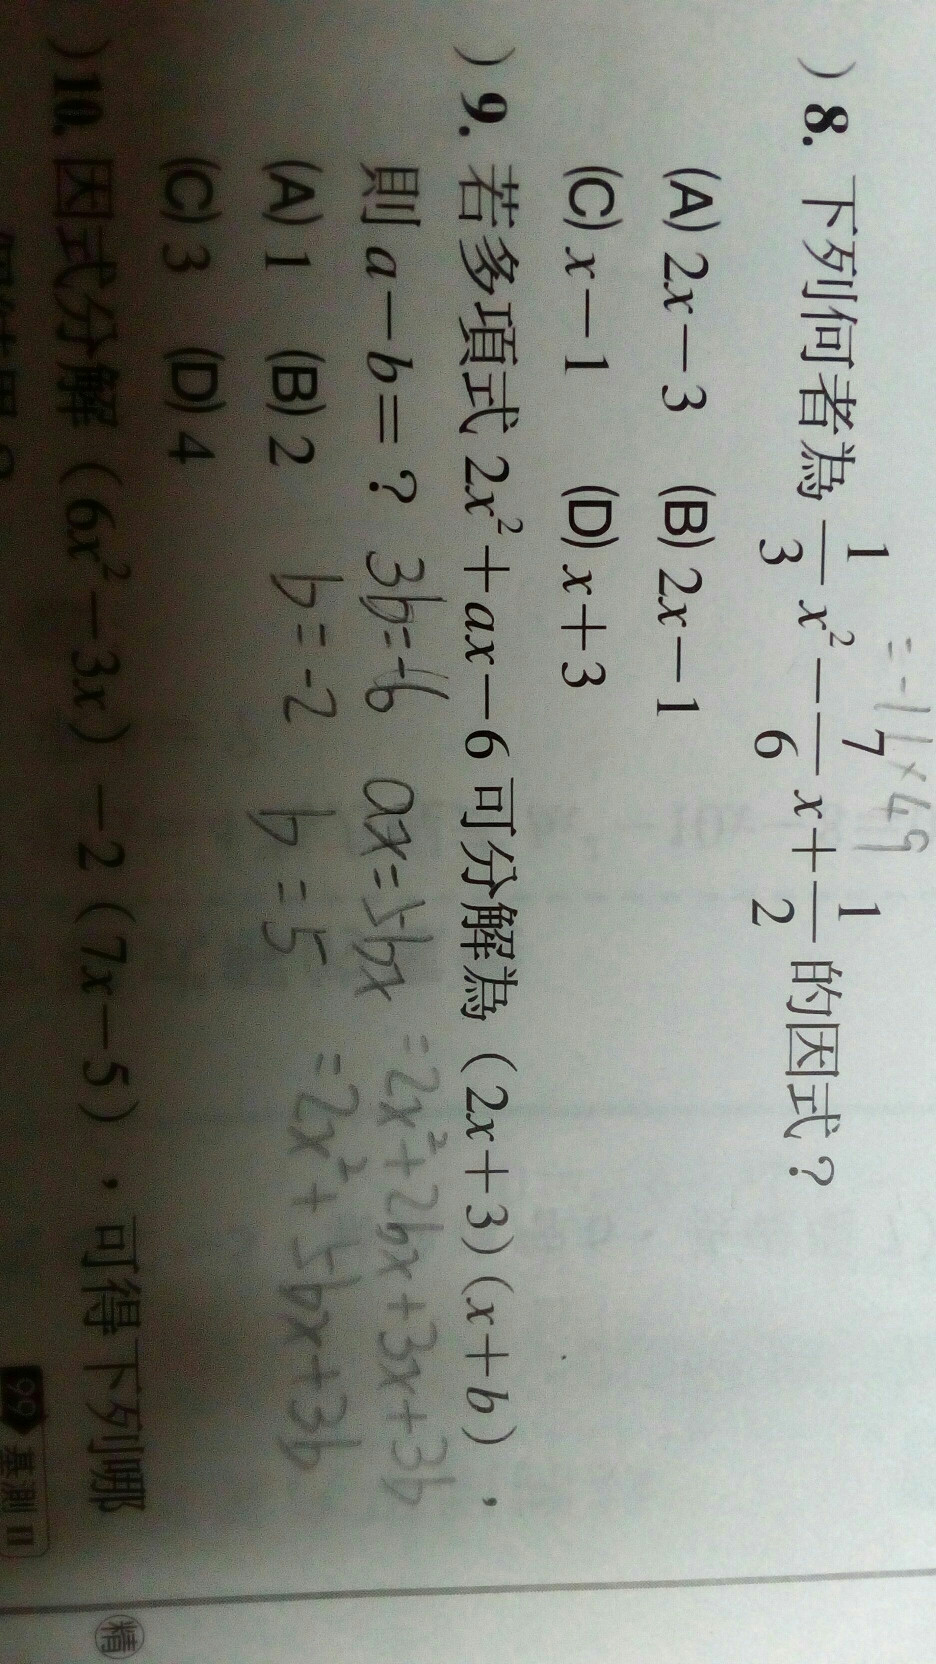 ≡-11×49
)8. 下列何者為 1/3 x² - 7/6 x + 1/2 的因式？
(A) 2x-3 (B) 2x-1
(C) x-1 (D) x+3
)9. 若多項式 2x²+ax-6 可分解為（2x+3）（x+b），
則 a-b=？ 3b=-6 ax=5bx =2x²+2bx+3x+3b
(A) 1 (B) 2 b=-2 b=5 =2x²+5bx+3b
(C) 3 (D) 4
)10. 因式分解（6x²-3x）-2（7x-5），可得下列哪
99 基測 II
精